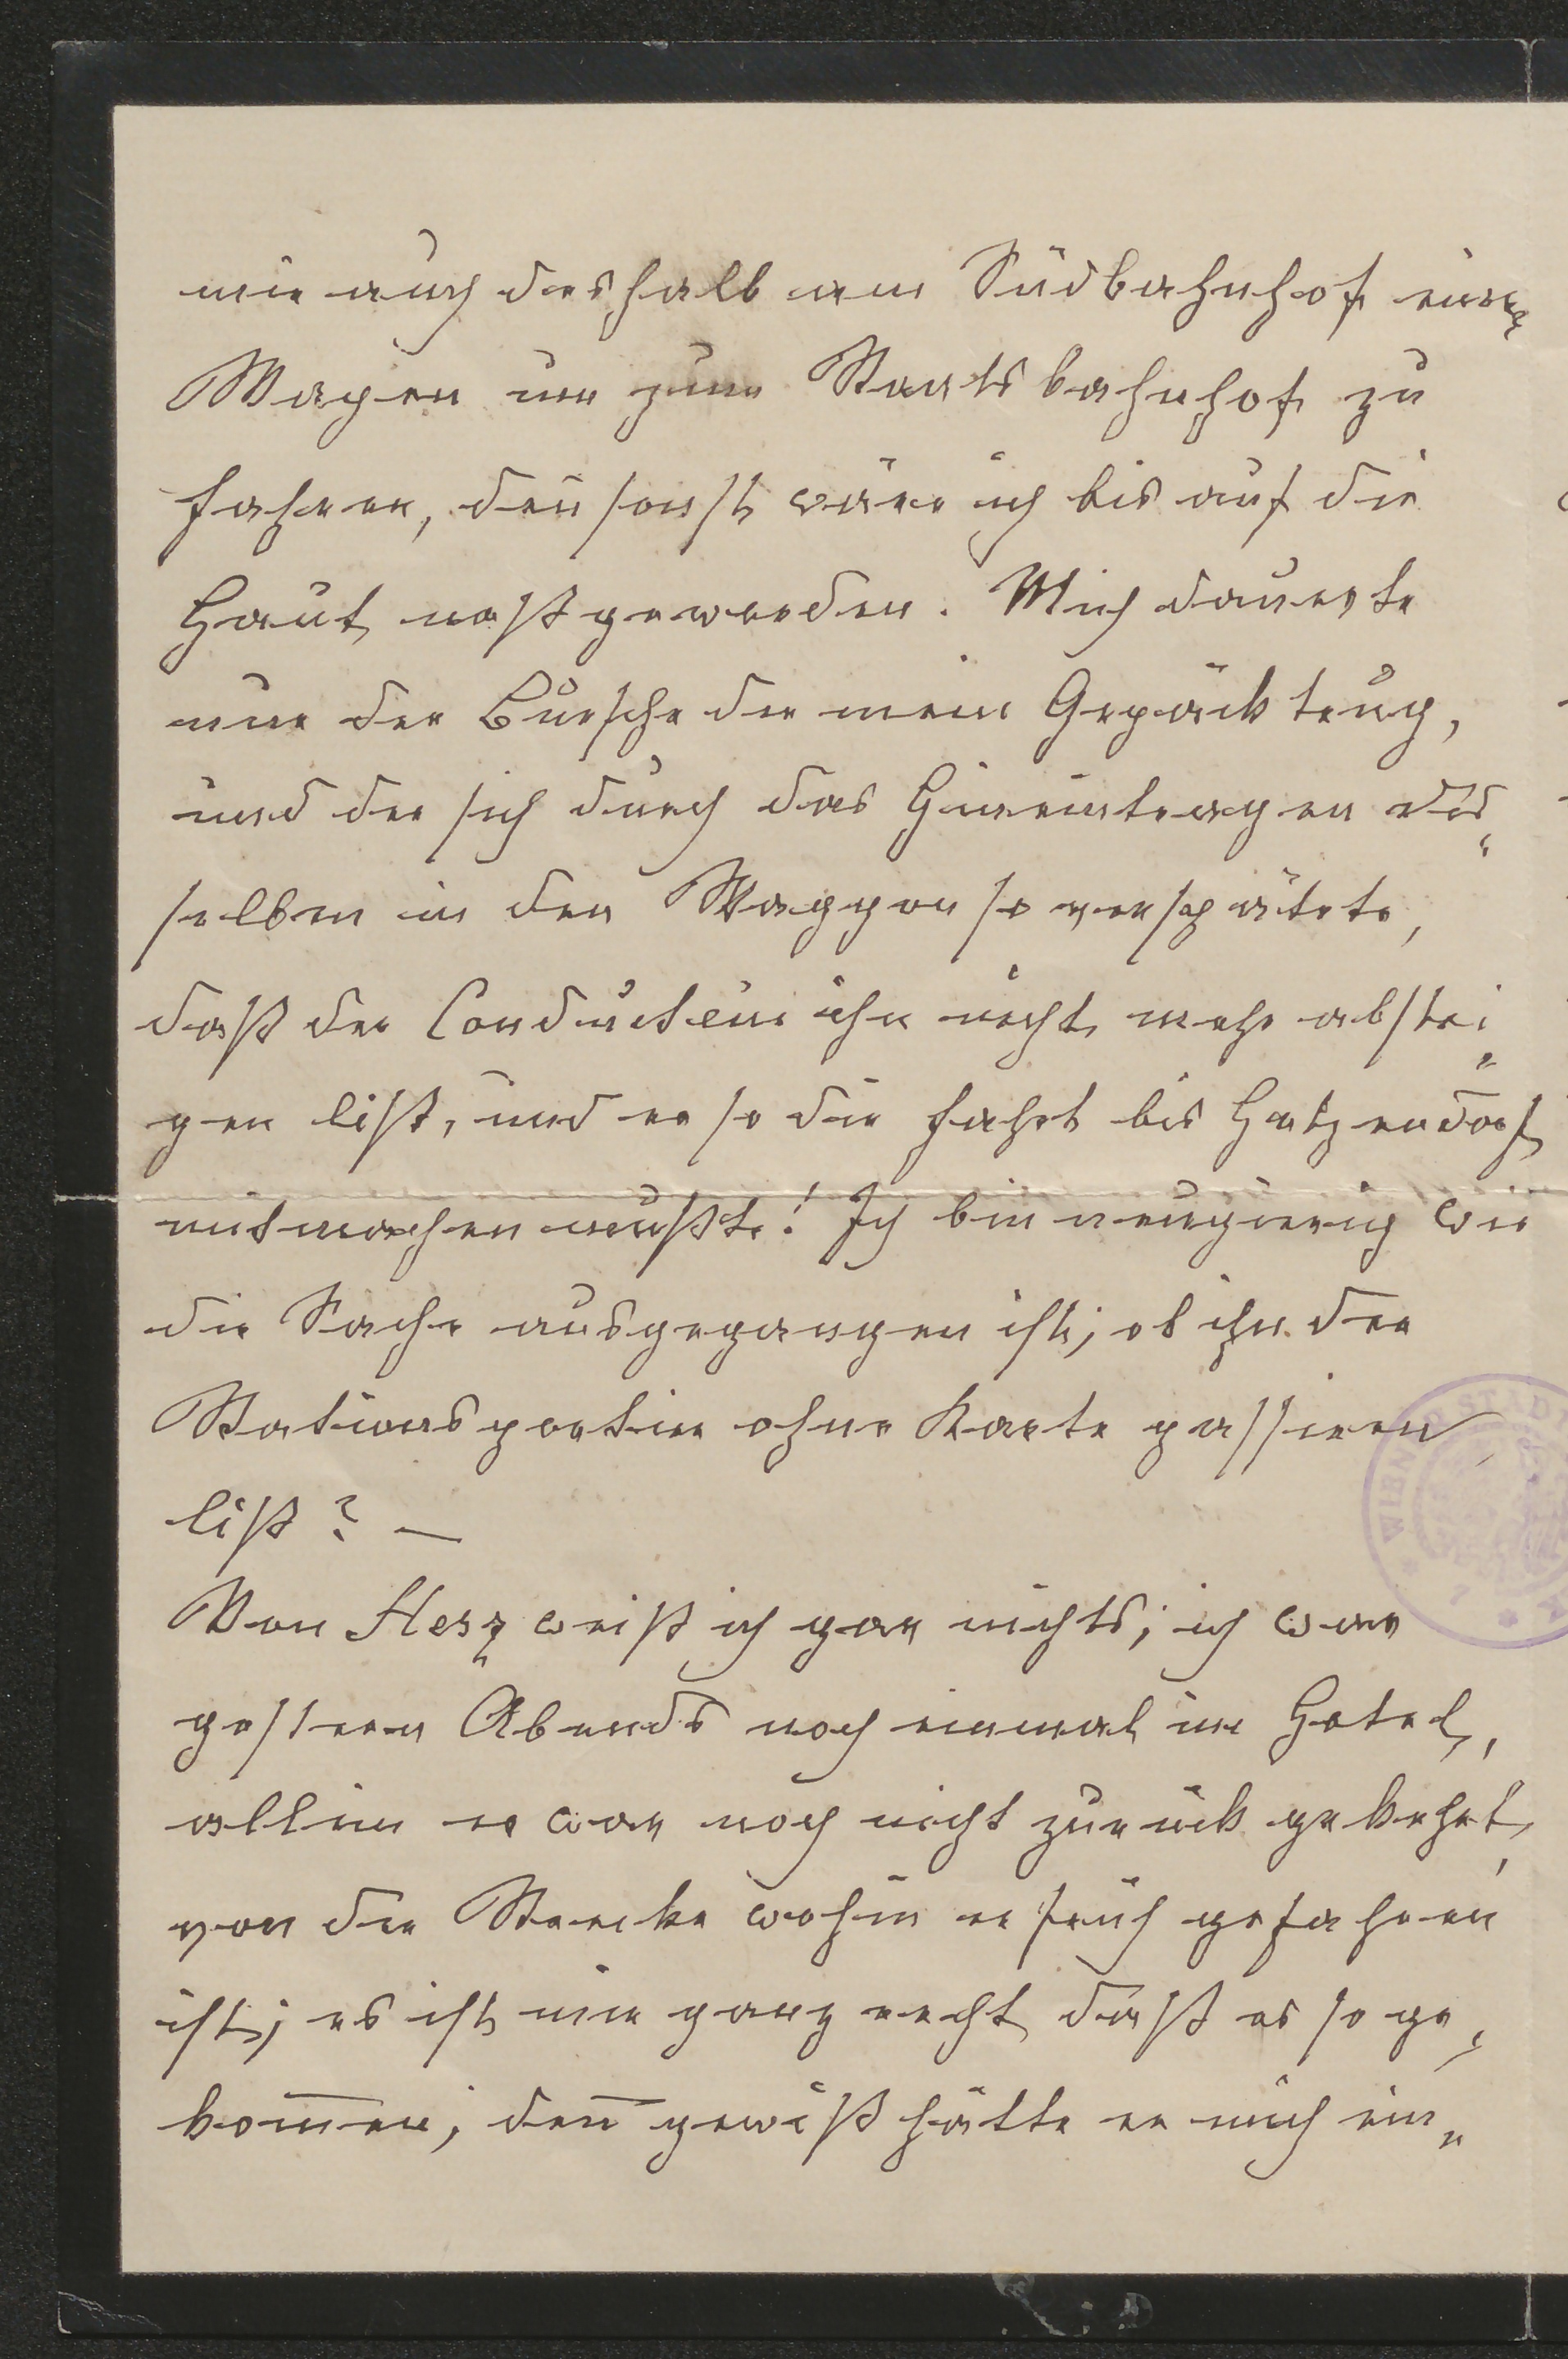 mir auch deshalb am Südbahnhof einen
Wagen um zum Staatsbahnhof zu
fahren, den̅ sonst wäre ich bis auf die
Haut naß geworden. Mich dauerte
nur der Bursche der mein Gepäck trug,
und der sich durch das Hineintragen des„
selben in den Waggon so verspätete,
daß der Conducteur ihn nicht mehr abstei„
gen ließ, und er so die Fahrt bis Hetzendorf
mitmachen mußte! Ich bin neugierig wie
die Sache ausgegangen ist; ob ihn der
Stationsportier ohne Karte passieren
ließ? —
Von Herz weiß ich gar nichts; ich war
gestern Abends noch einmal im Hotel,
allein er war noch nicht zurück gekehrt,
von der Strecke wohin er früh gefahren
ist; es ist mir ganz recht daß es so ge„
kom̅en; den̅ gewiß hätte er mich ein„
WIENER STADT